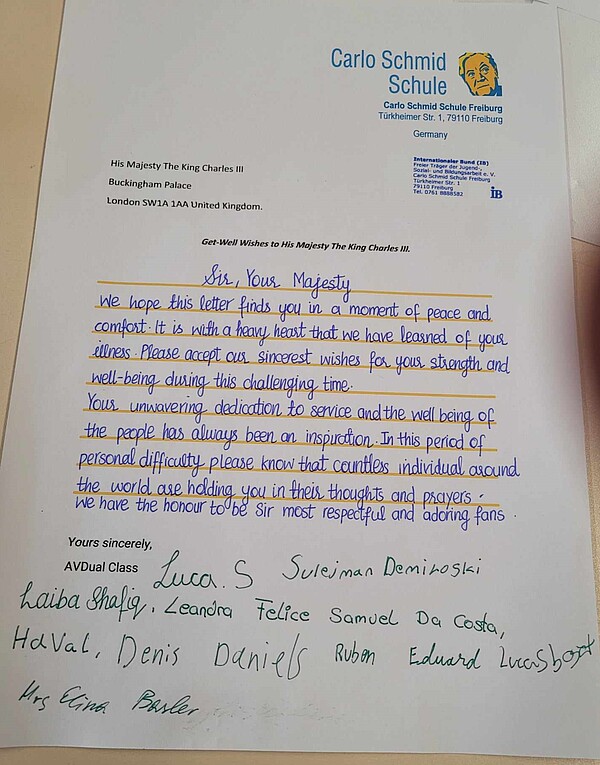 Carlo Schmid
Schule
Carlo Schmid Schule Freiburg
Türkheimer Str. 1, 79110 Freiburg
Germany
Internationaler Bund (IB)
Freier Träger der Jugend-,
Sozial- und Bildungsarbeit e. V.
Carlo Schmid Schule Freiburg
Türkheimer Str. 1
79110 Freiburg
Tel. 0761 8888582
IB
His Majesty The King Charles III
Buckingham Palace
London SW1A 1AA United Kingdom.
Get-Well Wishes to His Majesty The King Charles III.
Sir, Your Majesty
We hope this letter finds you in a moment of peace and
comfort. It is with a heavy heart that we have learned of your
illness. Please accept our sincerest wishes for your strength and
well-being during this challenging time.
Your unwavering dedication to service and the well being of
the people has always been an inspiration. In this period of
personal difficulty please know that countless individual around
the world are holding you in their thoughts and prayers.
We have the honour to be Sir most respectful and adoring fans.
Yours sincerely,
AVDual Class Luca. S Sulejman Demiroski
Laiba Shafiq, Leandra Felice Samuel Da Costa,
HaVal, Denis Daniels Ruben Eduard Lucas
Mrs Elina Basler